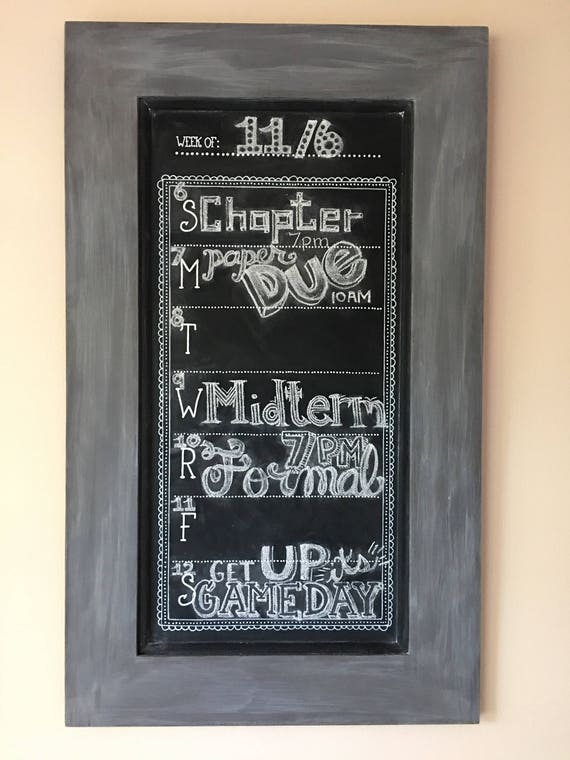 WEEK OF: 11/6
6
S Chapter
7pm
7
M paper DUE
10AM
8
T
9
W Midterm
10
R Formal 7/PM
11
F
12
S GET UP it's
GAMEDAY